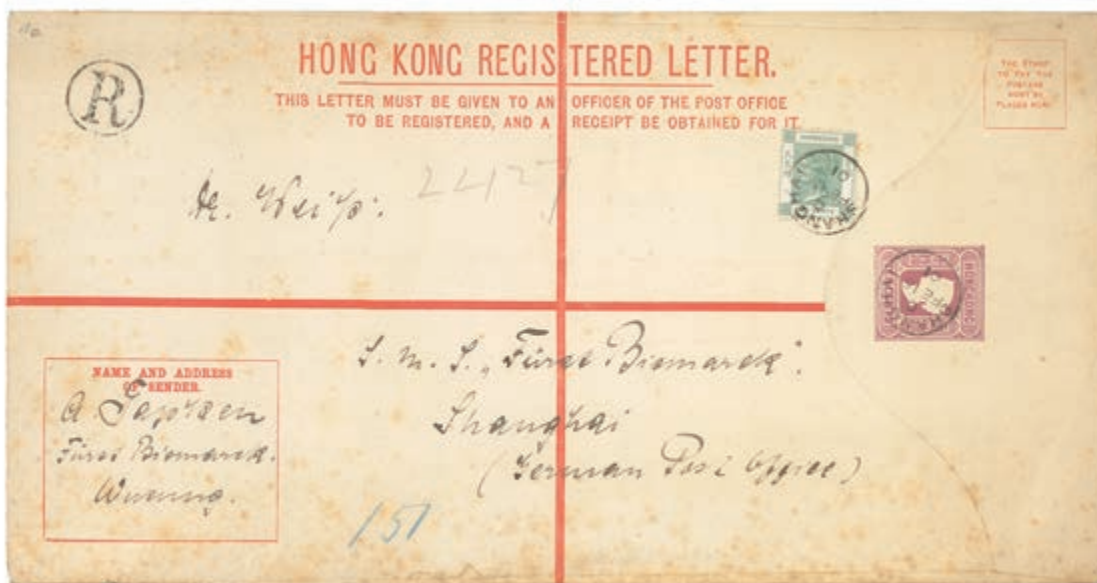 HONG KONG REGISTERED LETTER.
THIS LETTER MUST BE GIVEN TO AN OFFICER OF THE POST OFFICE
TO BE REGISTERED, AND A RECEIPT BE OBTAINED FOR IT.
R
THE STAMP
TO PAY THE
POSTAGE
MUST BE
PLACED HERE
2427
SHANGHAI
HONG KONG
SHANGHAI
S. M. S. „Fürst Bismarck".
Shanghai
(German Post Office)
NAME AND ADDRESS
OF SENDER.
A.
Fürst Bismarck.
Woosung.
151